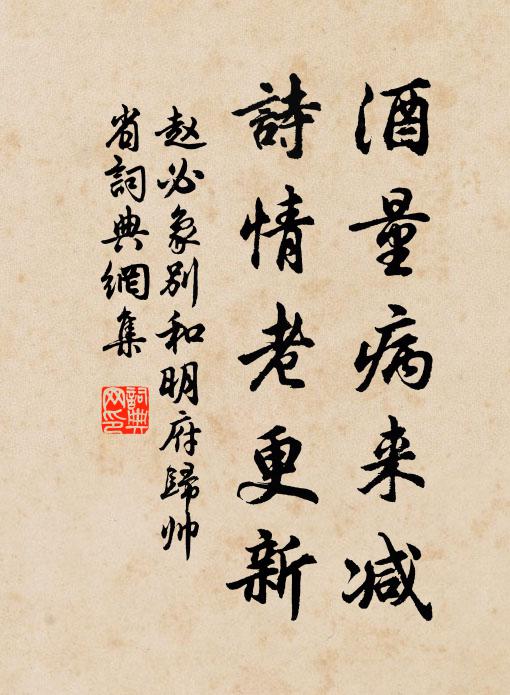 酒量病来減
詩情老更新
赵必象别和明府歸帅
省詞典網集
詞典
网印